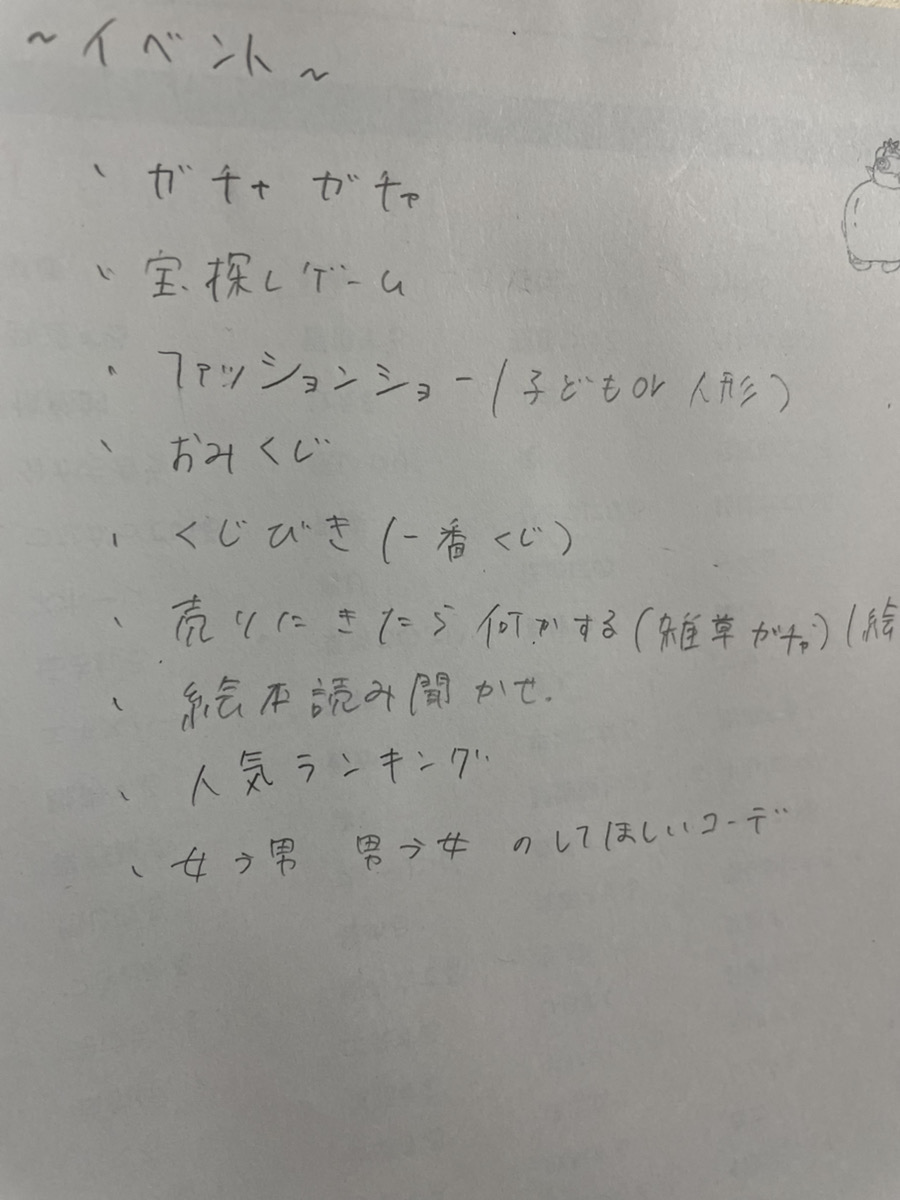 ～イベント～
・ガチャガチャ
・宝探しゲーム
・ファッションショー(子どもor人形)
・おみくじ
・くじびき(一番くじ)
・売りにきたら何かする(雑草ガチャ)(絵
・絵本読み聞かせ.
・人気ランキング
・女→男 男→女 のしてほしいコーデ